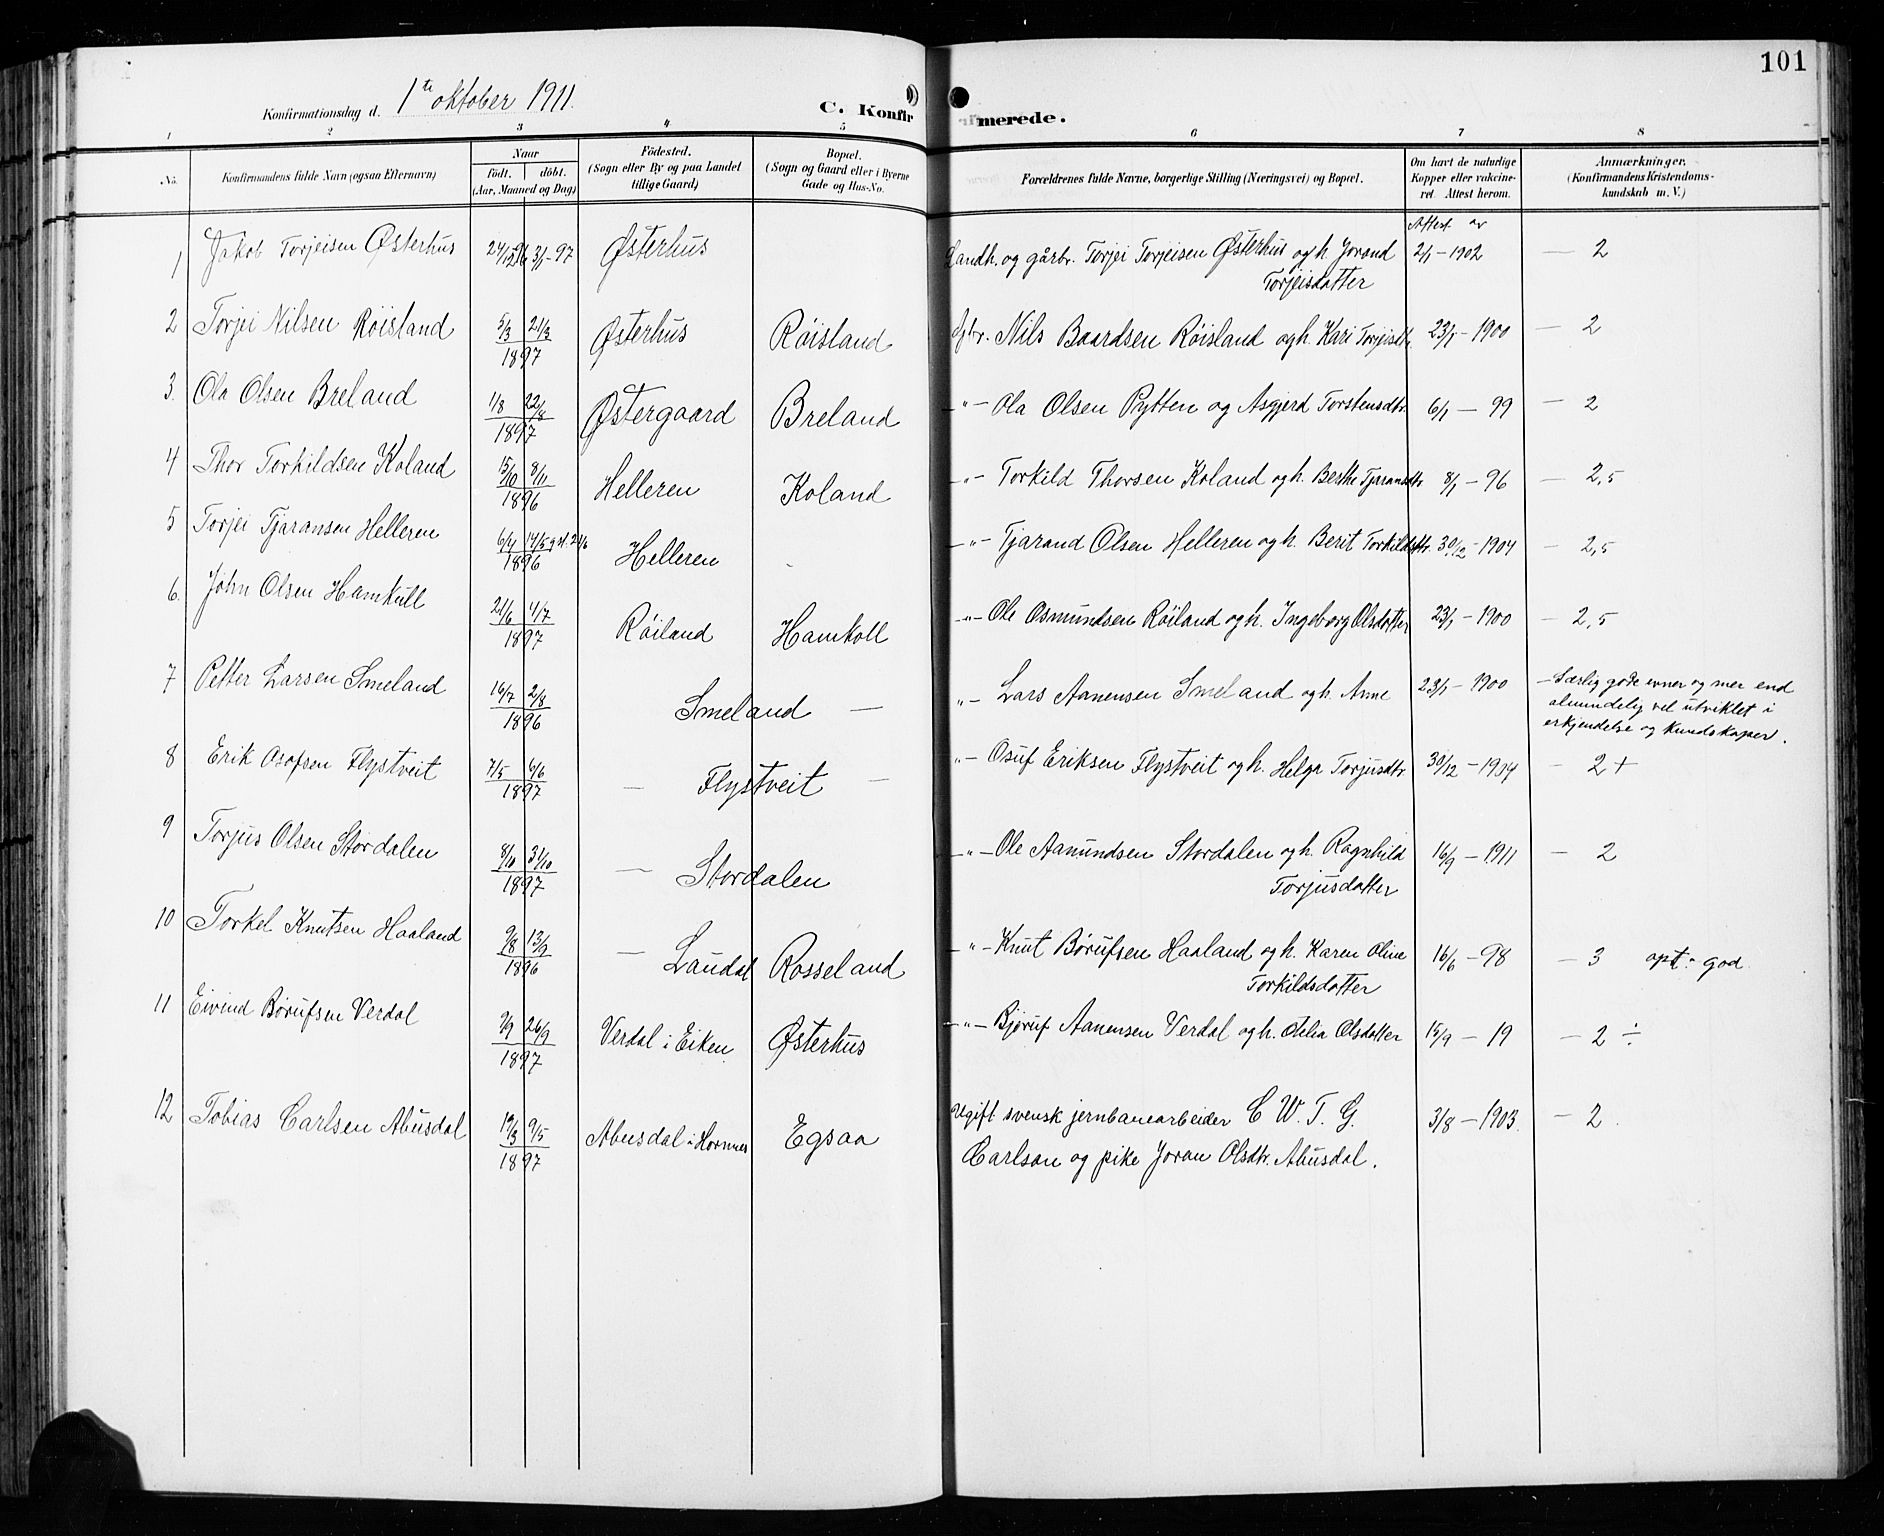 101
Konfirmationsdag d. 1te oktober 1911.
C. Konfirmerede.
1 2 3 4 5 6 7 8
No.
Konfirmandens fulde Navn (ogsaa Efternavn)
Naar
födt. döbt.
(Aar, Maaned og Dag)
Födested.
(Sogn eller By og paa Landet
tillige Gaard)
Bopæl.
(Sogn og Gaard eller i Byerne
Gade og Hus-No.
Forældrenes fulde Navne, borgerlige Stilling (Næringsvei) og Bopæl.
Om havt de naturlige
Kopper eller vakcine-
ret. Attest herom.
Anmærkninger,
(Konfirmandens Kristendoms-
kundskab m. V.)
Attest av
1 Jakob Torjeisen Østerhus 24/12 96 3/1-97 Østerhus Landh. og gårbr. Torjei Torjeisen Østerhus og h. Jorand 2/1-1902 — 2
Torjeisdatter
2 Torjei Nilsen Røisland 5/3 21/3 Østerhus Røisland Gbr. Nils Baardsen Røisland og h. Kari Torjeisdtr. 23/1-1900 — 2
1897
3. Ola Olsen Breland 1/8 22/8 Østergaard Breland —"— Ola Olsen Pytten og Asgjerd Torstensdtr. 6/1 — 99 — 2
1897
4 Thor Torkildsen Koland 15/10 8/11 Helleren Koland —"— Torkild Thorsen Koland og h. Berthe Tjaransdtr 8/1 — 96 — 2,5
1896
5 Torjei Tjaransen Helleren 6/4 14/5 g st. 21/6 Helleren - —"— Tjarand Olsen Helleren og h. Berit Torkildsdtr. 30/12-1904 — 2,5
1896
6. John Olsen Hamkull 21/6 4/7 Røiland Hamkoll —"— Ole Osmundsen Røiland og h. Ingeborg Olsdatter 23/1-1900 — 2,5
1897
7 Petter Larsen Smeland 16/7 2/8 Smeland — —"— Lars Aanensen Smeland og h. Anne 23/1-1900 — Særlig gode evner og mer end
1896 almindelig vel utviklet i
erkjendelse og kundskaper.
8 Erik Osofsen Flystveit 7/5 6/6 — Flystveit — —"— Osuf Eriksen Flystveit og h. Helga Torjusdtr 30/12-1904 — 2 +
1897
9 Torjus Olsen Stordalen 8/10 31/10 — Stordalen —"— Ole Aamundsen Stordalen og h. Ragnhild 16/9 — 1911 — 2
1897 Torjusdatter
10 Torkel Knutsen Haaland 9/8 13/9 — Laudal Rosseland —"— Knut Børufsen Haaland og h. Karen Oline 16/6 — 98 — 3 opt: god
1896 Torkildsdatter
11 Eivind Børufsen Verdal 7/9 26/9 Verdal i Eiken Østerhus —"— Bjøruf Aanensen Verdal og h. Otelia Olsdatter 15/9 — 19 — 2 ÷
1897
12 Tobias Carlsen Abusdal 19/3 9/5 Abusdal i Hornnes Egsaa Ugift svensk jernbanearbeider C W. T. G. 3/8 — 1903. — 2.
1897 Carlson og pike Joran Olsdtr. Abusdal.